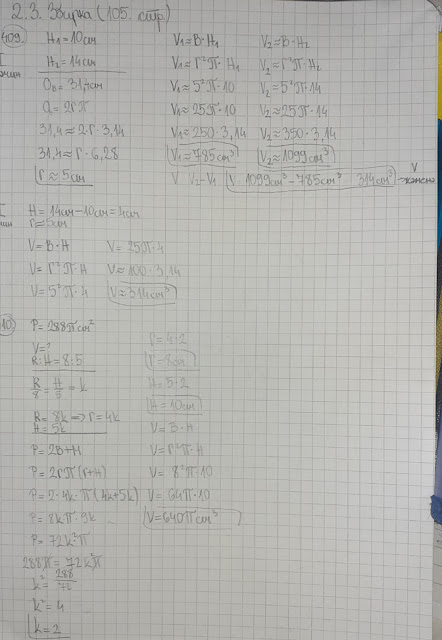 2.3. Збирка (105. стр.)
409.
H₁=10cm
H₁=14cm
O_B=31,4cm
O=2rπ
31,4≈2·r·3,14
31,4≈r·6,28
r≈5cm
V₁=B·H₁
V₁=r²π·H₁
V₁≈5²π·10
V₁≈25π·10
V₁≈250·3,14
V₁≈785cm³
V₂=B·H₂
V₂=r²π·H₂
V₂=5²π·14
V₂≈25π·14
V₂≈350·3,14
V₂≈1099cm³
V V₂-V₁ V 1099cm³-785cm³ 314cm³
V
H=14cm-10cm=4cm
r≈5cm
V=B·H
V=r²π·H
V=5²π·4
V=25π·4
V≈100·3,14
V≈314cm³
10
P=288πcm²
V=?
R:H=8:5
R/8=H/5=k
R=8k⇒r=4k
H=5k
P=2B+H
P=2rπ(r+H)
P=2·4k·π(4k+5k)
P=8k·π·9k
P=72k²π
288π=72k²π
k²=288/72
k²=4
k=2
r=4·2
r=8cm
H=5·2
H=10cm
V=B·H
V=r²π·H
V=8²π·10
V=64π·10
V=640πcm³